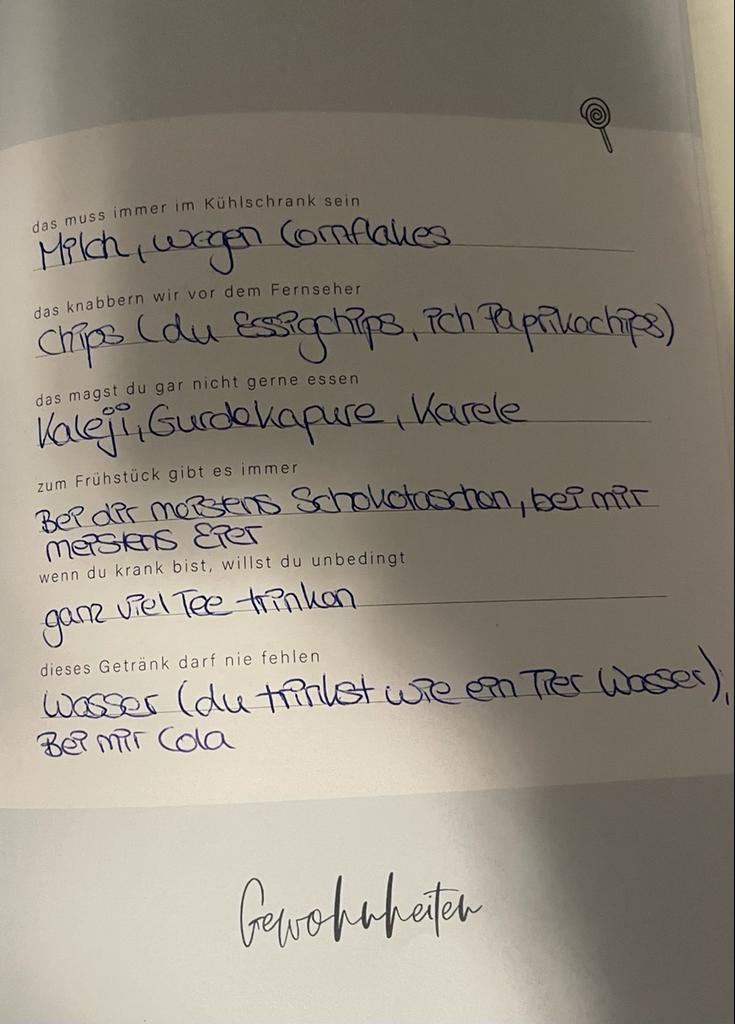 das muss immer im Kühlschrank sein
Milch, wegen Cornflakes
das knabbern wir vor dem Fernseher
Chips (du Essigchips, ich Paprikachips)
das magst du gar nicht gerne essen
Kaleji, Gurdekapure, Karele
zum Frühstück gibt es immer
Bei dir meistens Schokotaschen, bei mir
meistens Eier
wenn du krank bist, willst du unbedingt
ganz viel Tee trinken
dieses Getränk darf nie fehlen
Wasser (du trinkst wie ein Tier Wasser),
Bei mir Cola
Gewohnheiten